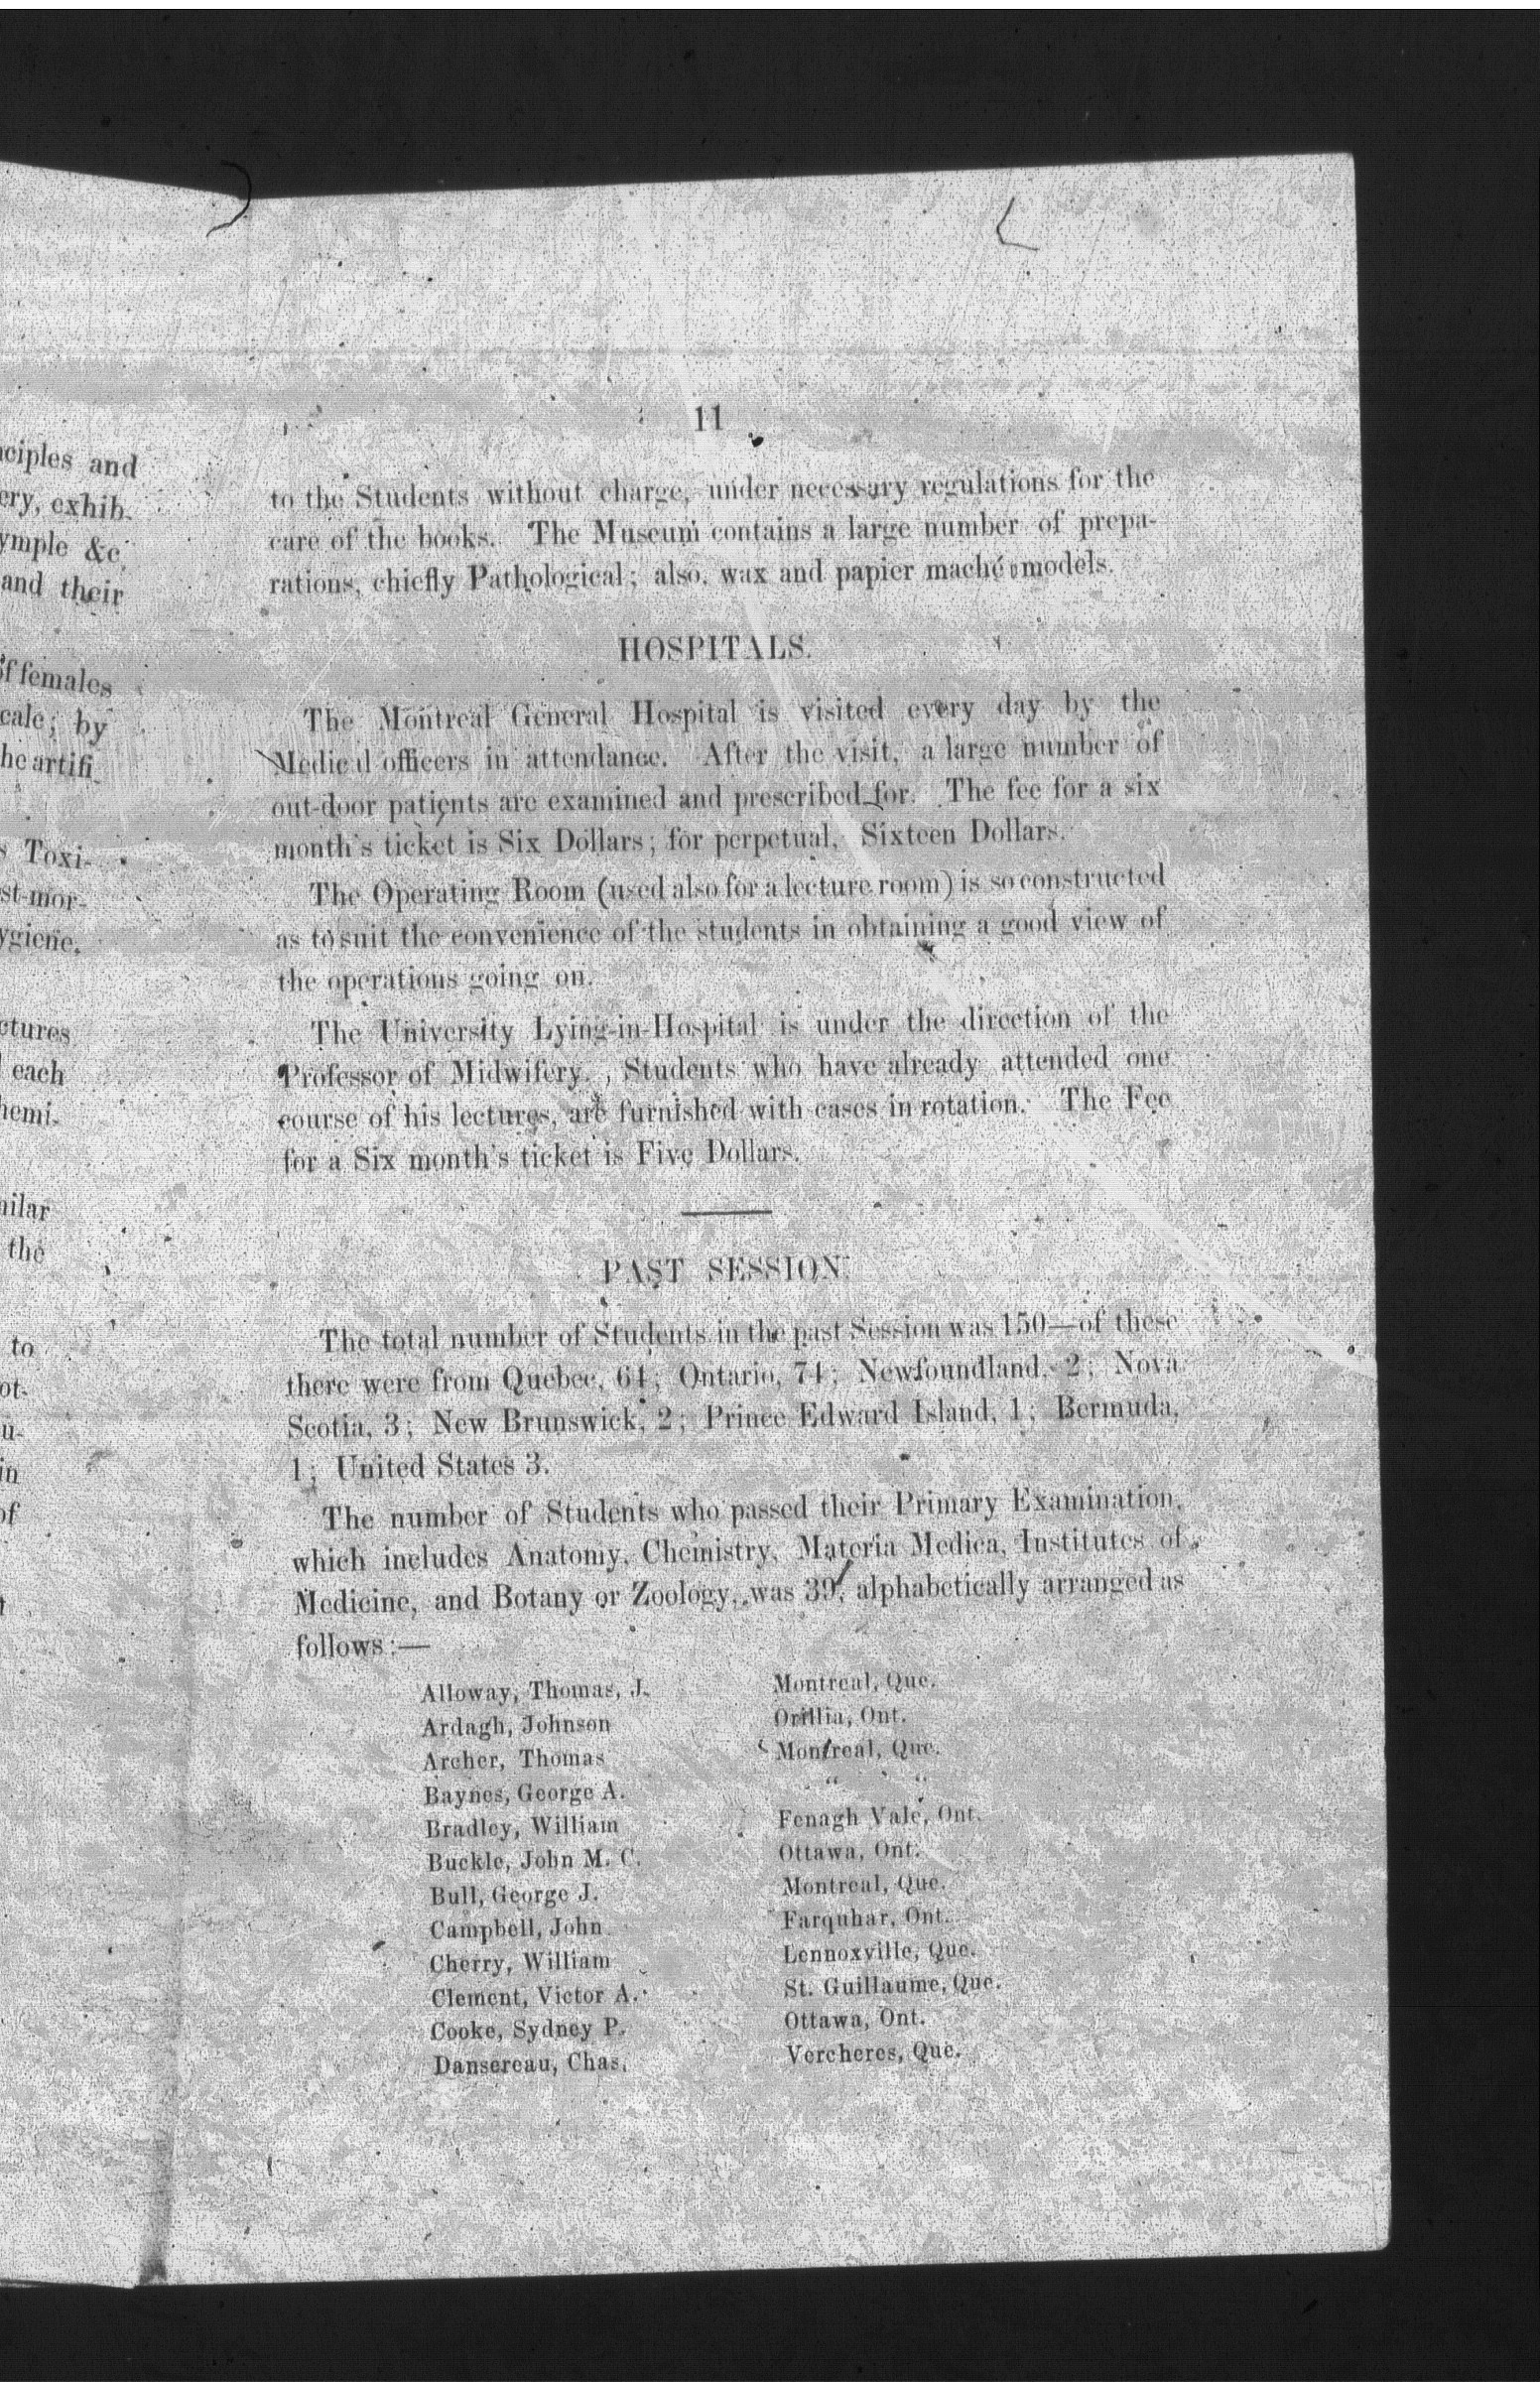 ciples and
ery, exhib-
ymple &c.
and their
of females
cale; by
he artifi-
s Toxi-
st-mor-
ygiene.
ctures
each
hemi-
milar
the
to
ot-
u-
in
of
11
to the Students without charge, under necessary regulations for the
care of the books. The Museum contains a large number of prepa-
rations, chiefly Pathological; also, wax and papier maché models.
HOSPITALS.
The Montreal General Hospital is visited every day by the
Medical officers in attendance. After the visit, a large number of
out-door patients are examined and prescribed for. The fee for a six
month's ticket is Six Dollars; for perpetual, Sixteen Dollars.
The Operating Room (used also for a lecture room) is so constructed
as to suit the convenience of the students in obtaining a good view of
the operations going on.
The University Lying-in-Hospital is under the direction of the
Professor of Midwifery. Students who have already attended one
course of his lectures, are furnished with cases in rotation. The Fee
for a Six month's ticket is Five Dollars.
PAST SESSION.
The total number of Students in the past Session was 150—of these
there were from Quebec, 64; Ontario, 74; Newfoundland, 2; Nova
Scotia, 3; New Brunswick, 2; Prince Edward Island, 1; Bermuda,
1; United States 3.
The number of Students who passed their Primary Examination,
which includes Anatomy, Chemistry, Materia Medica, Institutes of
Medicine, and Botany or Zoology, was 39, alphabetically arranged as
follows:—
Alloway, Thomas, J. Montreal, Que.
Ardagh, Johnson Orillia, Ont.
Archer, Thomas Montreal, Que.
Baynes, George A. " "
Bradley, William Fenagh Vale, Ont.
Buckle, John M. C. Ottawa, Ont.
Bull, George J. Montreal, Que.
Campbell, John Farquhar, Ont.
Cherry, William Lennoxville, Que.
Clement, Victor A. St. Guillaume, Que.
Cooke, Sydney P. Ottawa, Ont.
Dansereau, Chas. Vercheres, Que.